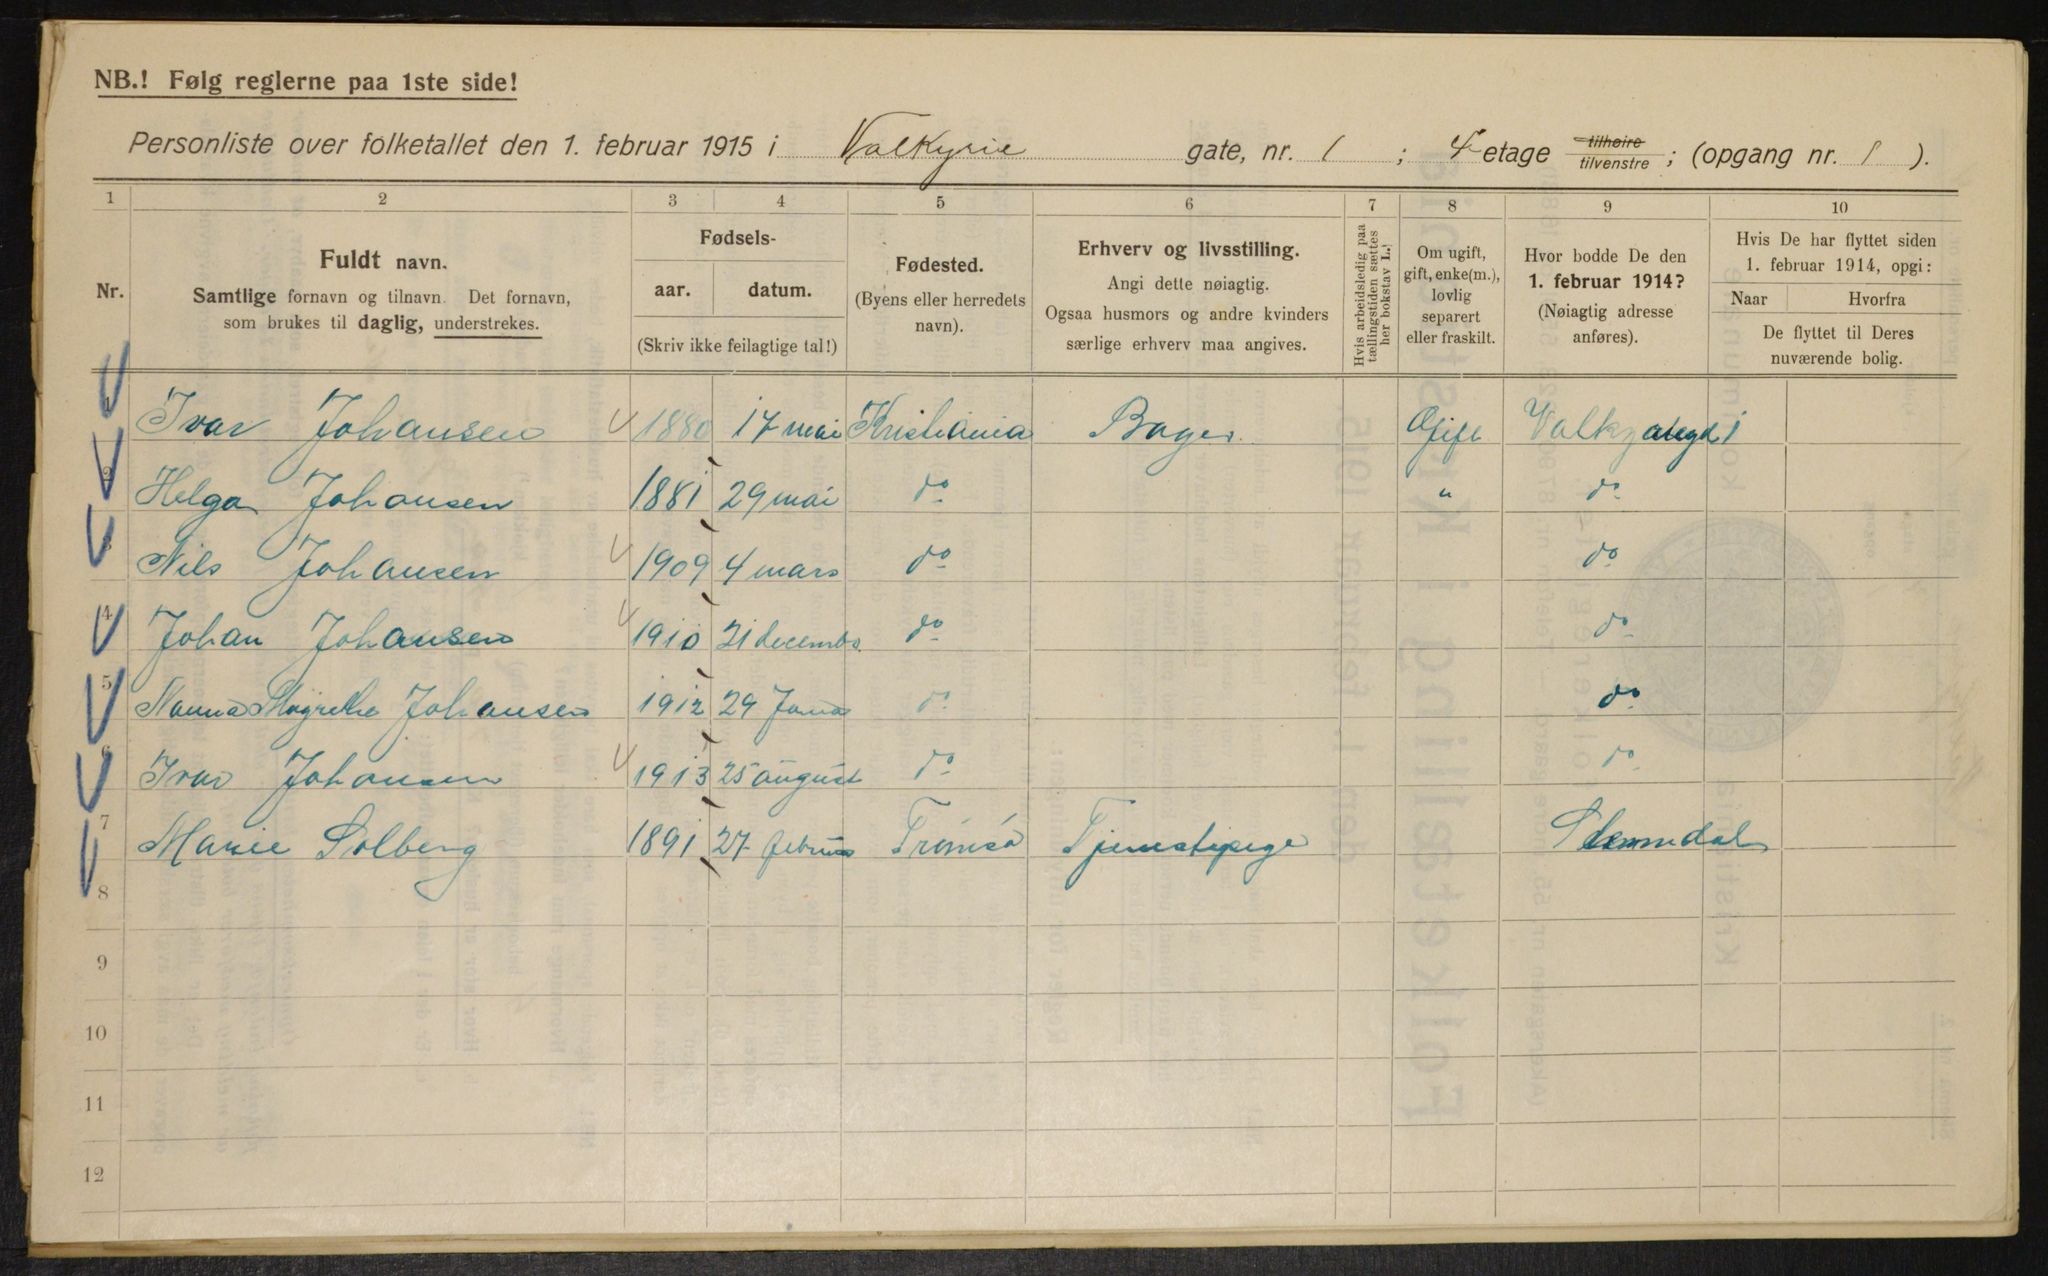 NB.! Følg reglerne paa 1ste side!
Personliste over folketallet den 1. februar 1915 i Valkyrie gate, nr. 1 ; 4 etage tilhøire tilvenstre ; (opgang nr. 1 ).
1 2 3 4 5 6 7 8 9 10
Nr.
Fuldt navn.
Samtlige fornavn og tilnavn. Det fornavn,
som brukes til daglig, understrekes.
Fødsels-
aar. datum.
(Skriv ikke feilagtige tal!)
Fødested.
(Byens eller herredets
navn).
Erhverv og livsstilling.
Angi dette nøiagtig.
Ogsaa husmors og andre kvinders
særlige erhverv maa angives.
Hvis arbeidsledig paa
tællingstiden sættes
her bokstav L.!
Om ugift,
gift, enke(m.),
lovlig
separert
eller fraskilt.
Hvor bodde De den
1. februar 1914?
(Nøiagtig adresse
anføres).
Hvis De har flyttet siden
1. februar 1914, opgi:
Naar Hvorfra
De flyttet til Deres
nuværende bolig.
Ivar Johansen 1880 17 mai Kristiania Bager Gift 1
2 Helga Johansen 1881 29 mai do " do
3 Nils Johansen 1909 4 mars do do
4 Johan Johansen 1910 21 decembr. do do
5 Nanna Margrethe Johansen 1912 29 do do
6 Ivar Johansen 1913 25 august do do
7 Marie Solberg 1891 27 Tromsö Tjenestepige
8
9
10
11
12